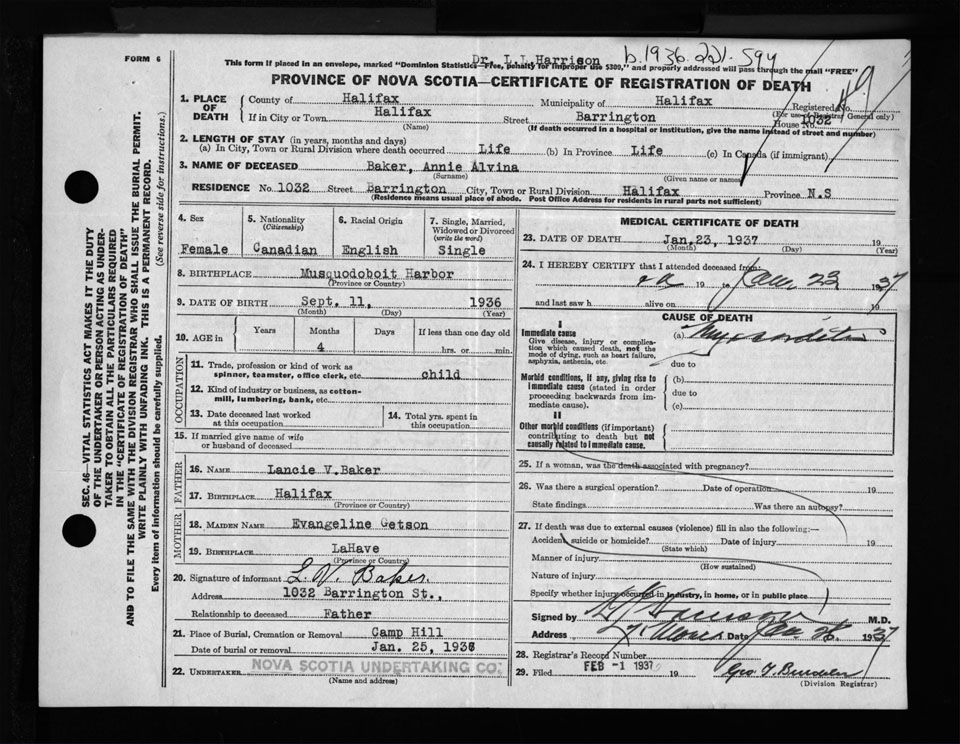 FORM 6
Dr. I. I. Harrison
b.1936.221.594
This form if placed in an envelope, marked "Dominion Statistics—Free, penalty for improper use $300," and properly addressed will pass through the mail "FREE"
PROVINCE OF NOVA SCOTIA—CERTIFICATE OF REGISTRATION OF DEATH
1. PLACE OF DEATH
County of Halifax Municipality of Halifax Registered No.
(For use of Registrar General only)
If in City or Town Halifax Street Barrington House No. 1032
(Name) (If death occurred in a hospital or institution, give the name instead of street and number)
2. LENGTH OF STAY (in years, months and days)
(a) In City, Town or Rural Division where death occurred Life (b) In Province Life (c) In Canada (if immigrant)
3. NAME OF DECEASED Baker, Annie Alvina
(Surname) (Given name or names)
RESIDENCE No. 1032 Street Barrington City, Town or Rural Division Halifax Province N.S
(Residence means usual place of abode. Post Office Address for residents in rural parts not sufficient)
4. Sex Female
5. Nationality (Citizenship) Canadian
6. Racial Origin English
7. Single, Married, Widowed or Divorced (write the word) Single
8. BIRTHPLACE Musquodoboit Harbor
(Province or Country)
9. DATE OF BIRTH Sept. 11, 1936
(Month) (Day) (Year)
10. AGE in Years Months Days If less than one day old
4 hrs. or min.
OCCUPATION
11. Trade, profession or kind of work as spinner, teamster, office clerk, etc. child
12. Kind of industry or business, as cotton-mill, lumbering, bank, etc.
13. Date deceased last worked at this occupation
14. Total yrs. spent in this occupation
15. If married give name of wife or husband of deceased
FATHER
16. NAME Lancie V. Baker
17. BIRTHPLACE Halifax
(Province or Country)
MOTHER
18. MAIDEN NAME Evangeline Getson
19. BIRTHPLACE LaHave
(Province or Country)
20. Signature of informant L. V. Baker.
Address 1032 Barrington St.,
Relationship to deceased Father
21. Place of Burial, Cremation or Removal Camp Hill
Date of burial or removal Jan. 25, 1936
22. UNDERTAKER NOVA SCOTIA UNDERTAKING CO.
(Name and address)
MEDICAL CERTIFICATE OF DEATH
23. DATE OF DEATH Jan, 23, 1937 19
(Month) (Day) (Year)
24. I HEREBY CERTIFY that I attended deceased from:
19 to Jan. 23 1937
and last saw h alive on 19
CAUSE OF DEATH
I
Immediate cause
Give disease, injury or complication which caused death, not the mode of dying, such as heart failure, asphyxia, asthenia, etc.
(a)
due to
Morbid conditions, if any, giving rise to immediate cause (stated in order proceeding backwards from immediate cause).
(b)
due to
(c)
II
Other morbid conditions (if important) contributing to death but not causally related to immediate cause.
25. If a woman, was the death associated with pregnancy?
26. Was there a surgical operation? Date of operation 19
State findings Was there an autopsy?
27. If death was due to external causes (violence) fill in also the following:—
Accident, suicide or homicide? Date of injury 19
(State which)
Manner of injury
(How sustained)
Nature of injury
Specify whether injury occurred in industry, in home, or in public place
Signed by M.D.
Address Date Jan 1937
28. Registrar's Record Number
29. Filed FEB -1 1937 19
(Division Registrar)
SEC. 46—VITAL STATISTICS ACT MAKES IT THE DUTY
OF THE UNDERTAKER OR PERSON ACTING AS UNDERTAKER
TO OBTAIN ALL THE PARTICULARS REQUIRED
IN THE "CERTIFICATE OF REGISTRATION OF DEATH"
AND TO FILE THE SAME WITH THE DIVISION REGISTRAR WHO SHALL ISSUE THE BURIAL PERMIT.
WRITE PLAINLY WITH UNFADING INK. THIS IS A PERMANENT RECORD.
Every item of information should be carefully supplied. (See reverse side for instructions.)